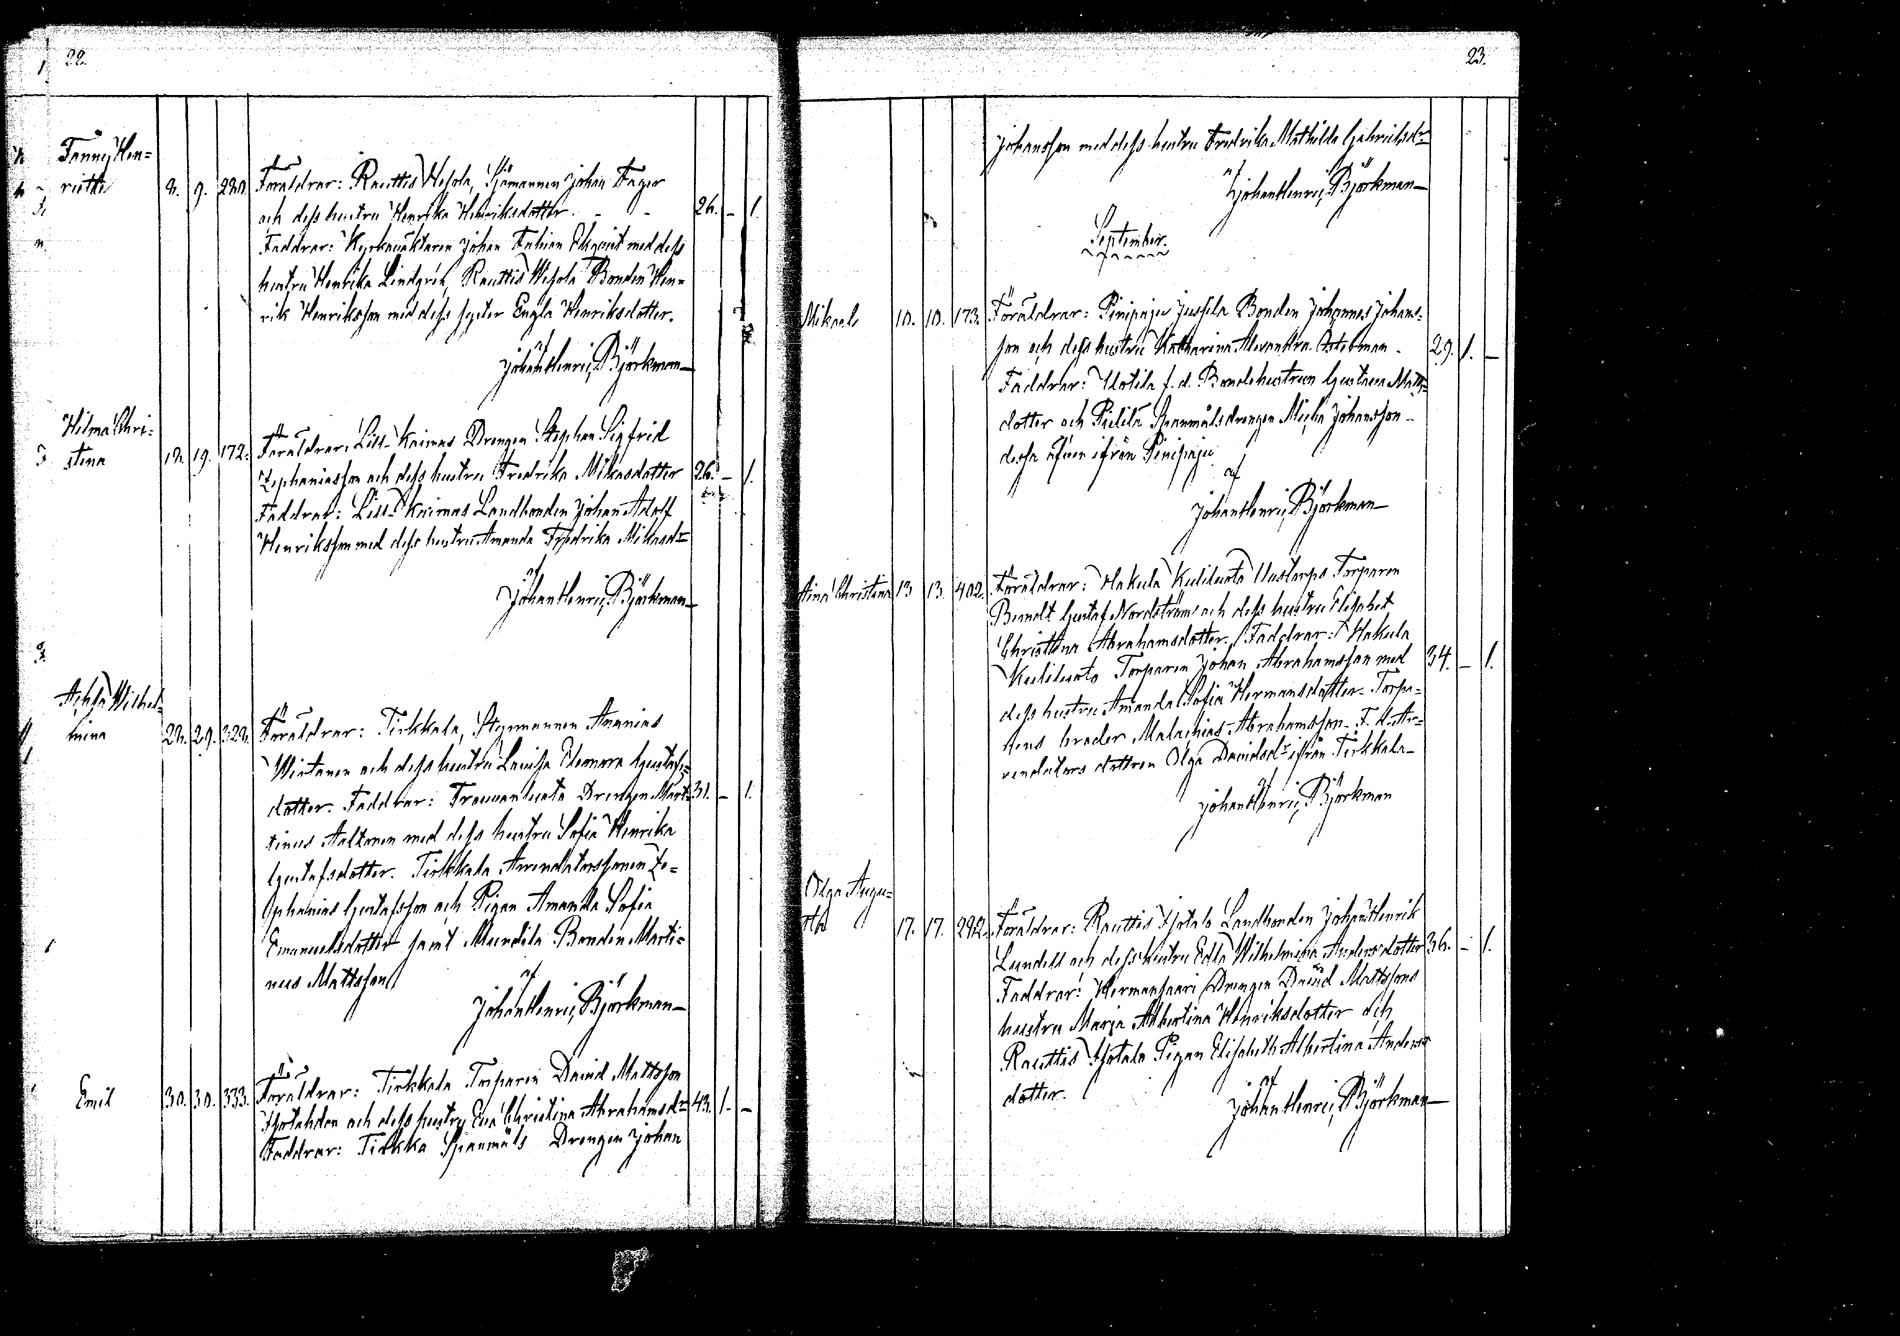 22.
Fanny Hen=
riette 8. 9. 280. Föräldrar: Rauttis Wesola, Sjömannen Johan Fager
och dess hustru Henrika Henriksdotter. - - 26. - 1.
Faddrar: Kyrkoväktaren Johan Fabian Ekqvist med dess
hustru Henrika Lindgrén, Rauttis Wesola Bonden Hen=
rik Henriksson med dess syster Engla Henriksdotter.
af
Johan Henric Björkman
Hilma Chri=
stina 18. 19. 172. Föräldrar: Kaimas Drengen Stephan Sigfrid
Zephaniasson och dess hustru Fredrika Mikasdotter 26. - 1.
Faddrar: Kaimas Landbonden Johan Adolf
Henriksson med dess hustru Amanda Fredrika Mikasdr
af
Johan Henric Björkman
Wilhel=
mina 28. 29. 328. Föräldrar: Tirkkala, Styrmannen Ananias
Wirtanen och dess hustru Lovisa Eleonora Gustafs=
dotter. Faddrar: Drengen Mar= 31. - 1.
tinus Aaltonen med dess hustru Sofia Henrika
Gustafsdotter. Tirkkala Arrendatorssonen Ze=
phanias Gustafsson och Pigan Amanda Sofia
Emanuelsdotter samt Mundila Bonden Marti=
nus Mattsson
af
Johan Henric Björkman
Emil 30. 30. 333. Föräldrar: Tirkkala Torparen David Mattsson
och dess hustru Eva Christina Abrahamsdr 43. 1. -
Faddrar: Tirkka Spanmåls Drengen Johan
23.
Johansson med dess hustru Fredrika Mathilda Gabrielsdr
af
Johan Henric Björkman
September.
Mikael 10. 10. 173. Föräldrar: Pinipaju Jussila Bonden Johannes Johans=
son och dess hustru Katharina Alexandra Österman - 29. 1. -
Faddrar: Uotila f.d. Bondehustrun Gustava Matts=
dotter och Spanmålsdrengen Micha Johansson -
dessa äfven ifrån Pinipaju
af
Johan Henric Björkman
Aina Christina 13 13. 402. Föräldrar: Hakula Kuliluoto Torparen
Berndt Gustaf Nordström och dess hustru Elisabet
Christina Abrahamsdotter. Faddrar: Hakula
Kuliluoto Torparen Johan Abrahamsson med 34. - 1.
dess hustru Amanda Sofia Hermansdotter. Torpa=
rens broder Malachias Abrahamsson. F.d. Ar=
rendators dottren Olga Davidsdr ifrån Tirkkala
af
Johan Henric Björkman
Olga Augu=
sta 17. 17. 292. Föräldrar: Rauttis Landbonden Johan Henrik
Lundell och dess hustru Edla Wilhelmina Andersdotter 36. - 1.
Faddrar: Hermansaari Drengen David Mattssons
hustru Maria Albertina Henriksdotter och
Rauttis Pigan Elisabeth Albertina Anders=
dotter.
af
Johan Henric Björkman